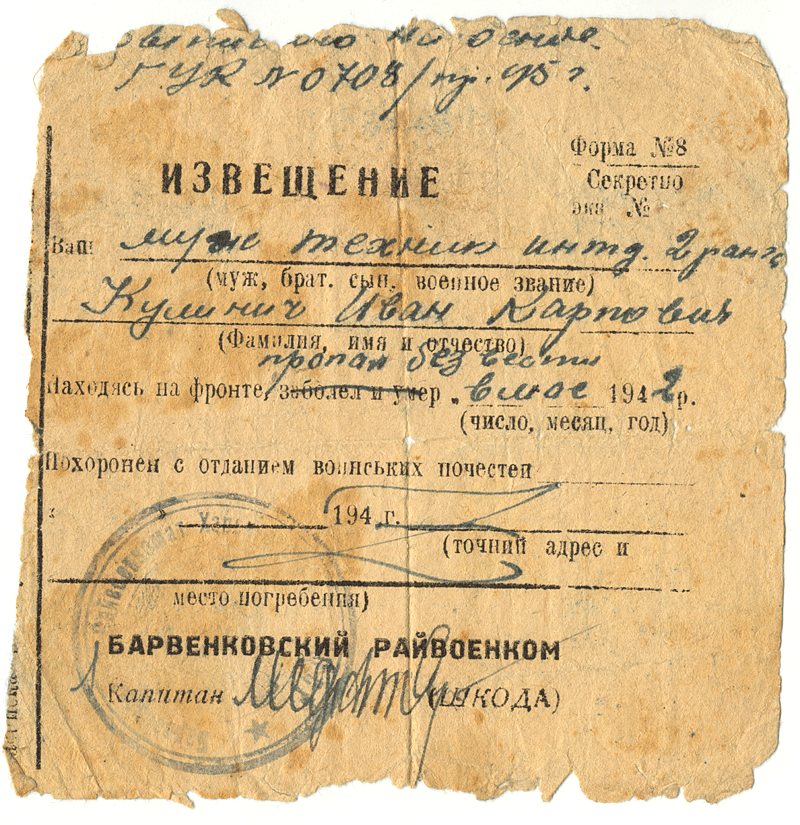 на основе.
ГУК №0708/пр. 45 г.
Форма №8
Секретно
экз №
ИЗВЕЩЕНИЕ
Ваш муж техник интд. 2 ранга
(муж, брат. сын. военное звание)
Кулинич Иван Карпович
(Фамилия, имя и отчество)
пропал без вести
Находясь на фронте, заболел и умер в мае 1942 г.
(число, месяц, год)
Похоронен с отданием воинських почестей
« » 194 г.
(точний адрес и
место погребения)
БАРВЕНКОВСКИЙ РАЙВОЕНКОМ
Капитан (ШКОДА)